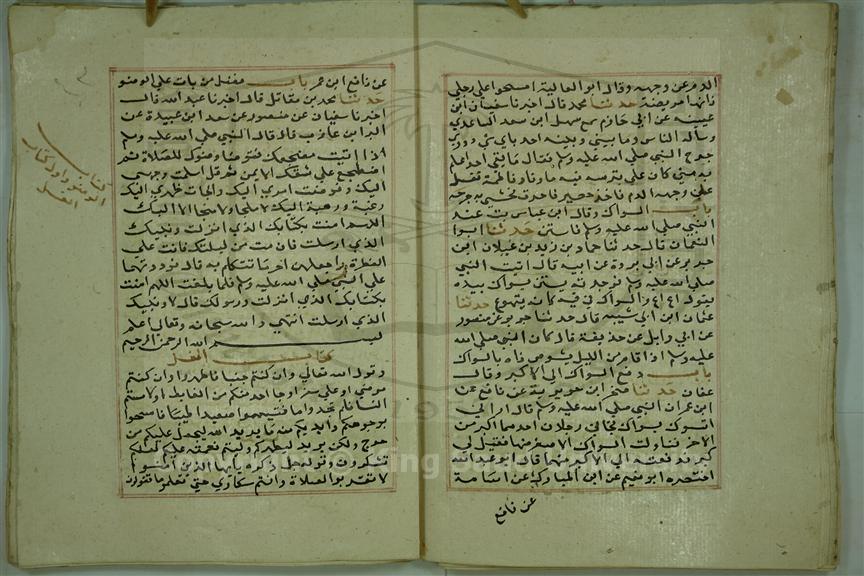 الدم عن وجهه وقال ابو العالية امسحوا على رجلي
فانها مريضة حدثنا محمد قال اخبرنا سفيان ابن
عيينه عن ابي حازم سمع سهل ابن سعد الساعدي
وسأله الناس وما بيني وبينه احد باي شي دووي
جرح النبي صلى الله عليه وسلم فقال ما بقي احد اعلم
به مني كان علي بترسه فيه ماء وفاطمة تغسل
عن وجهه الدم فاخذ حصير فاحرق فحشي به جرحه
باب السواك وقال ابن عباس بت عند
النبي صلى الله عليه وسلم فاستن حدثنا ابو
النعمان قال حدثنا حماد بن زيد بن غيلان ابن
جرير عن ابي بردة عن ابيه قال اتيت النبي
صلى الله عليه وسلم فوجدته يستن بسواك بيده
يقول اع اع والسواك في فيه كانه يتهوع حدثنا
عثمان ابن ابي شيبه قال حدثنا جرير عن منصور
عن ابي وايل عن حذيفة قال كان النبي صلى الله
عليه وسلم اذا قام من الليل يشوص فاه بالسواك
باب دفع السواك الى الاكبر وقال
عفان حدثنا صخر ابن جويرية عن نافع عن
ابن عمر ان النبي صلى الله عليه وسلم قال اراني
اتسوك بسواك فجاني رجلان احدهما اكبر من
الاخر فناولت السواك الاصغر منهما فقيل لي
كبر فدفعته الى الاكبر منهما قال ابو عبد الله
اختصره ابو نعيم عن ابن المبارك عن اسامة
عن نافع
عن نافع ابن عمر باب فضل من بات على الوضو
حدثنا محمد بن مقاتل قال اخبرنا عبد الله قال
اخبرنا سفيان عن منصور عن سعد ابن عبيدة عن
البرا ابن عازب قال قال النبي صلى الله عليه وسلم
اذا اتيت مضجعك فتوضا وضوك للصلاة ثم
اضطجع على شقك الايمن ثم قل اسلمت وجهي
اليك وفوضت امري اليك والجات ظهري اليك
رغبة ورهبة اليك لا ملجا ولا منجا الا اليك
اللهم امنت بكتابك الذي انزلت ونبيك
الذي ارسلت فان مت من ليلتك فانت على
الفطرة واجعلهن اخر ما تتكلم به قال فرددتها
على النبي صلى الله عليه وسلم فلما بلغت اللهم امنت
بكتابك الذي انزلت ورسولك قال لا ونبيك
الذي ارسلت انتهى والله سبحانه وتعالى اعلم
بسم الله الرحمن الرحيم
كتاب الغسل
وقول الله تعالى وان كنتم جنبا فاطهروا وان كنتم
مرضى او على سفر او جا احد منكم من الغايط او لامستم
النسا فلم تجدوا ما فتيمموا صعيدا طيبا فامسحوا
بوجوهكم وايديكم منه ما يريد الله ليجعل عليكم من
حرج ولكن يريد ليطهركم وليتم نعمته عليكم لعلكم
تشكرون وقوله جل ذكره يايها الذين امنوا
لا تقربوا الصلاة وانتم سكارى حتى تعلموا ما تقولون
كتاب
الغسل